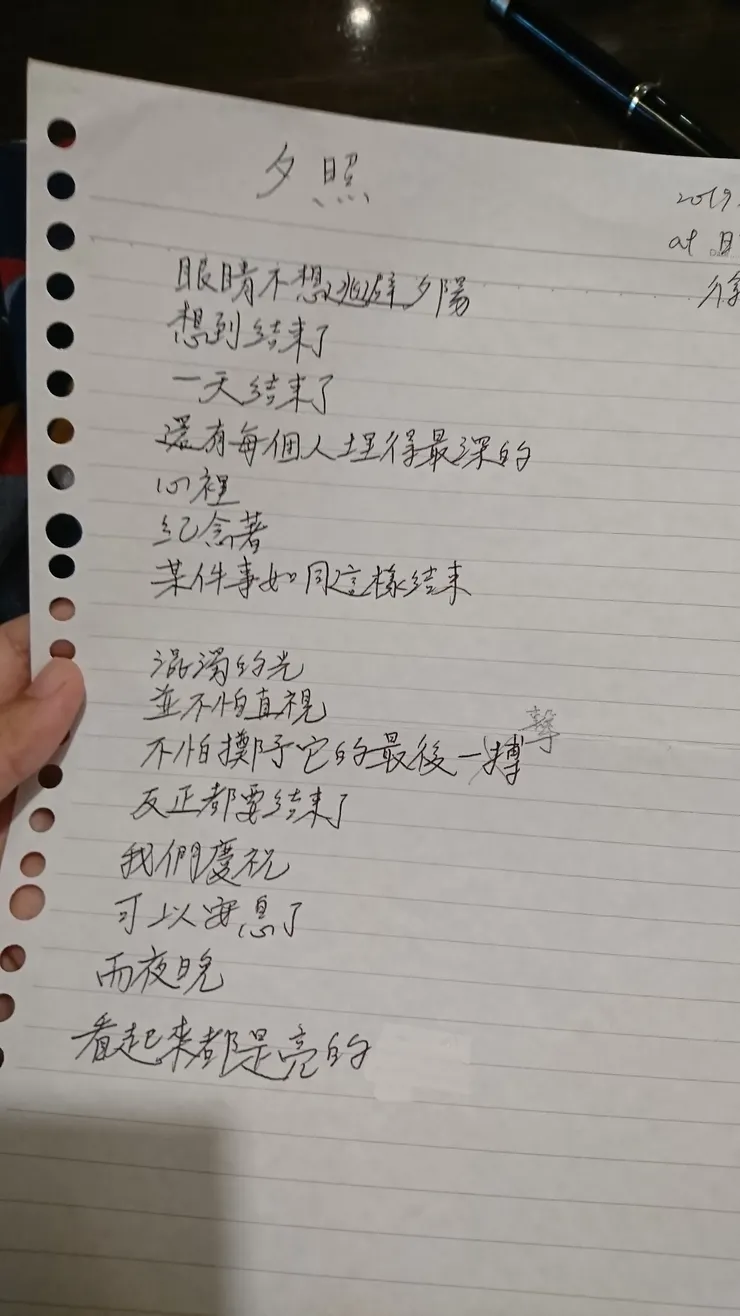 夕照
2019.
at 日
徐
眼睛不想逃避夕陽
想到結束了
一天結束了
還有每個人埋得最深的
心裡
紀念著
某件事如同這樣結束
混濁的光
並不怕直視
擊
不怕擲陊它的最後一搏
反正都要結束了
我們慶祝
可以安息了
而夜晚
看起來都是亮的